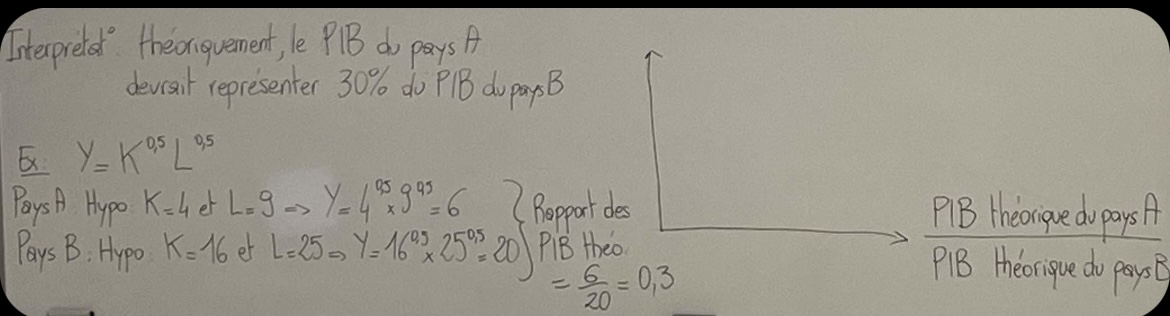 Interprétat° : théoriquement, le PIB du pays A
devrait représenter 30% du PIB du pays B
Ex: Y = K^0,5 L^0,5
Pays A : Hypo : K=4 et L=9 => Y= 4^0,5 × 9^0,5 = 6
Pays B : Hypo : K=16 et L=25 => Y=16^0,5 × 25^0,5 = 20
} Rapport des
PIB théo.
= 6/20 = 0,3
PIB théorique du pays A
PIB théorique du pays B